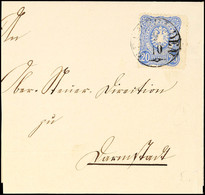 An
Ober-Steuer-Direktion
zu
Darmstadt
20
10